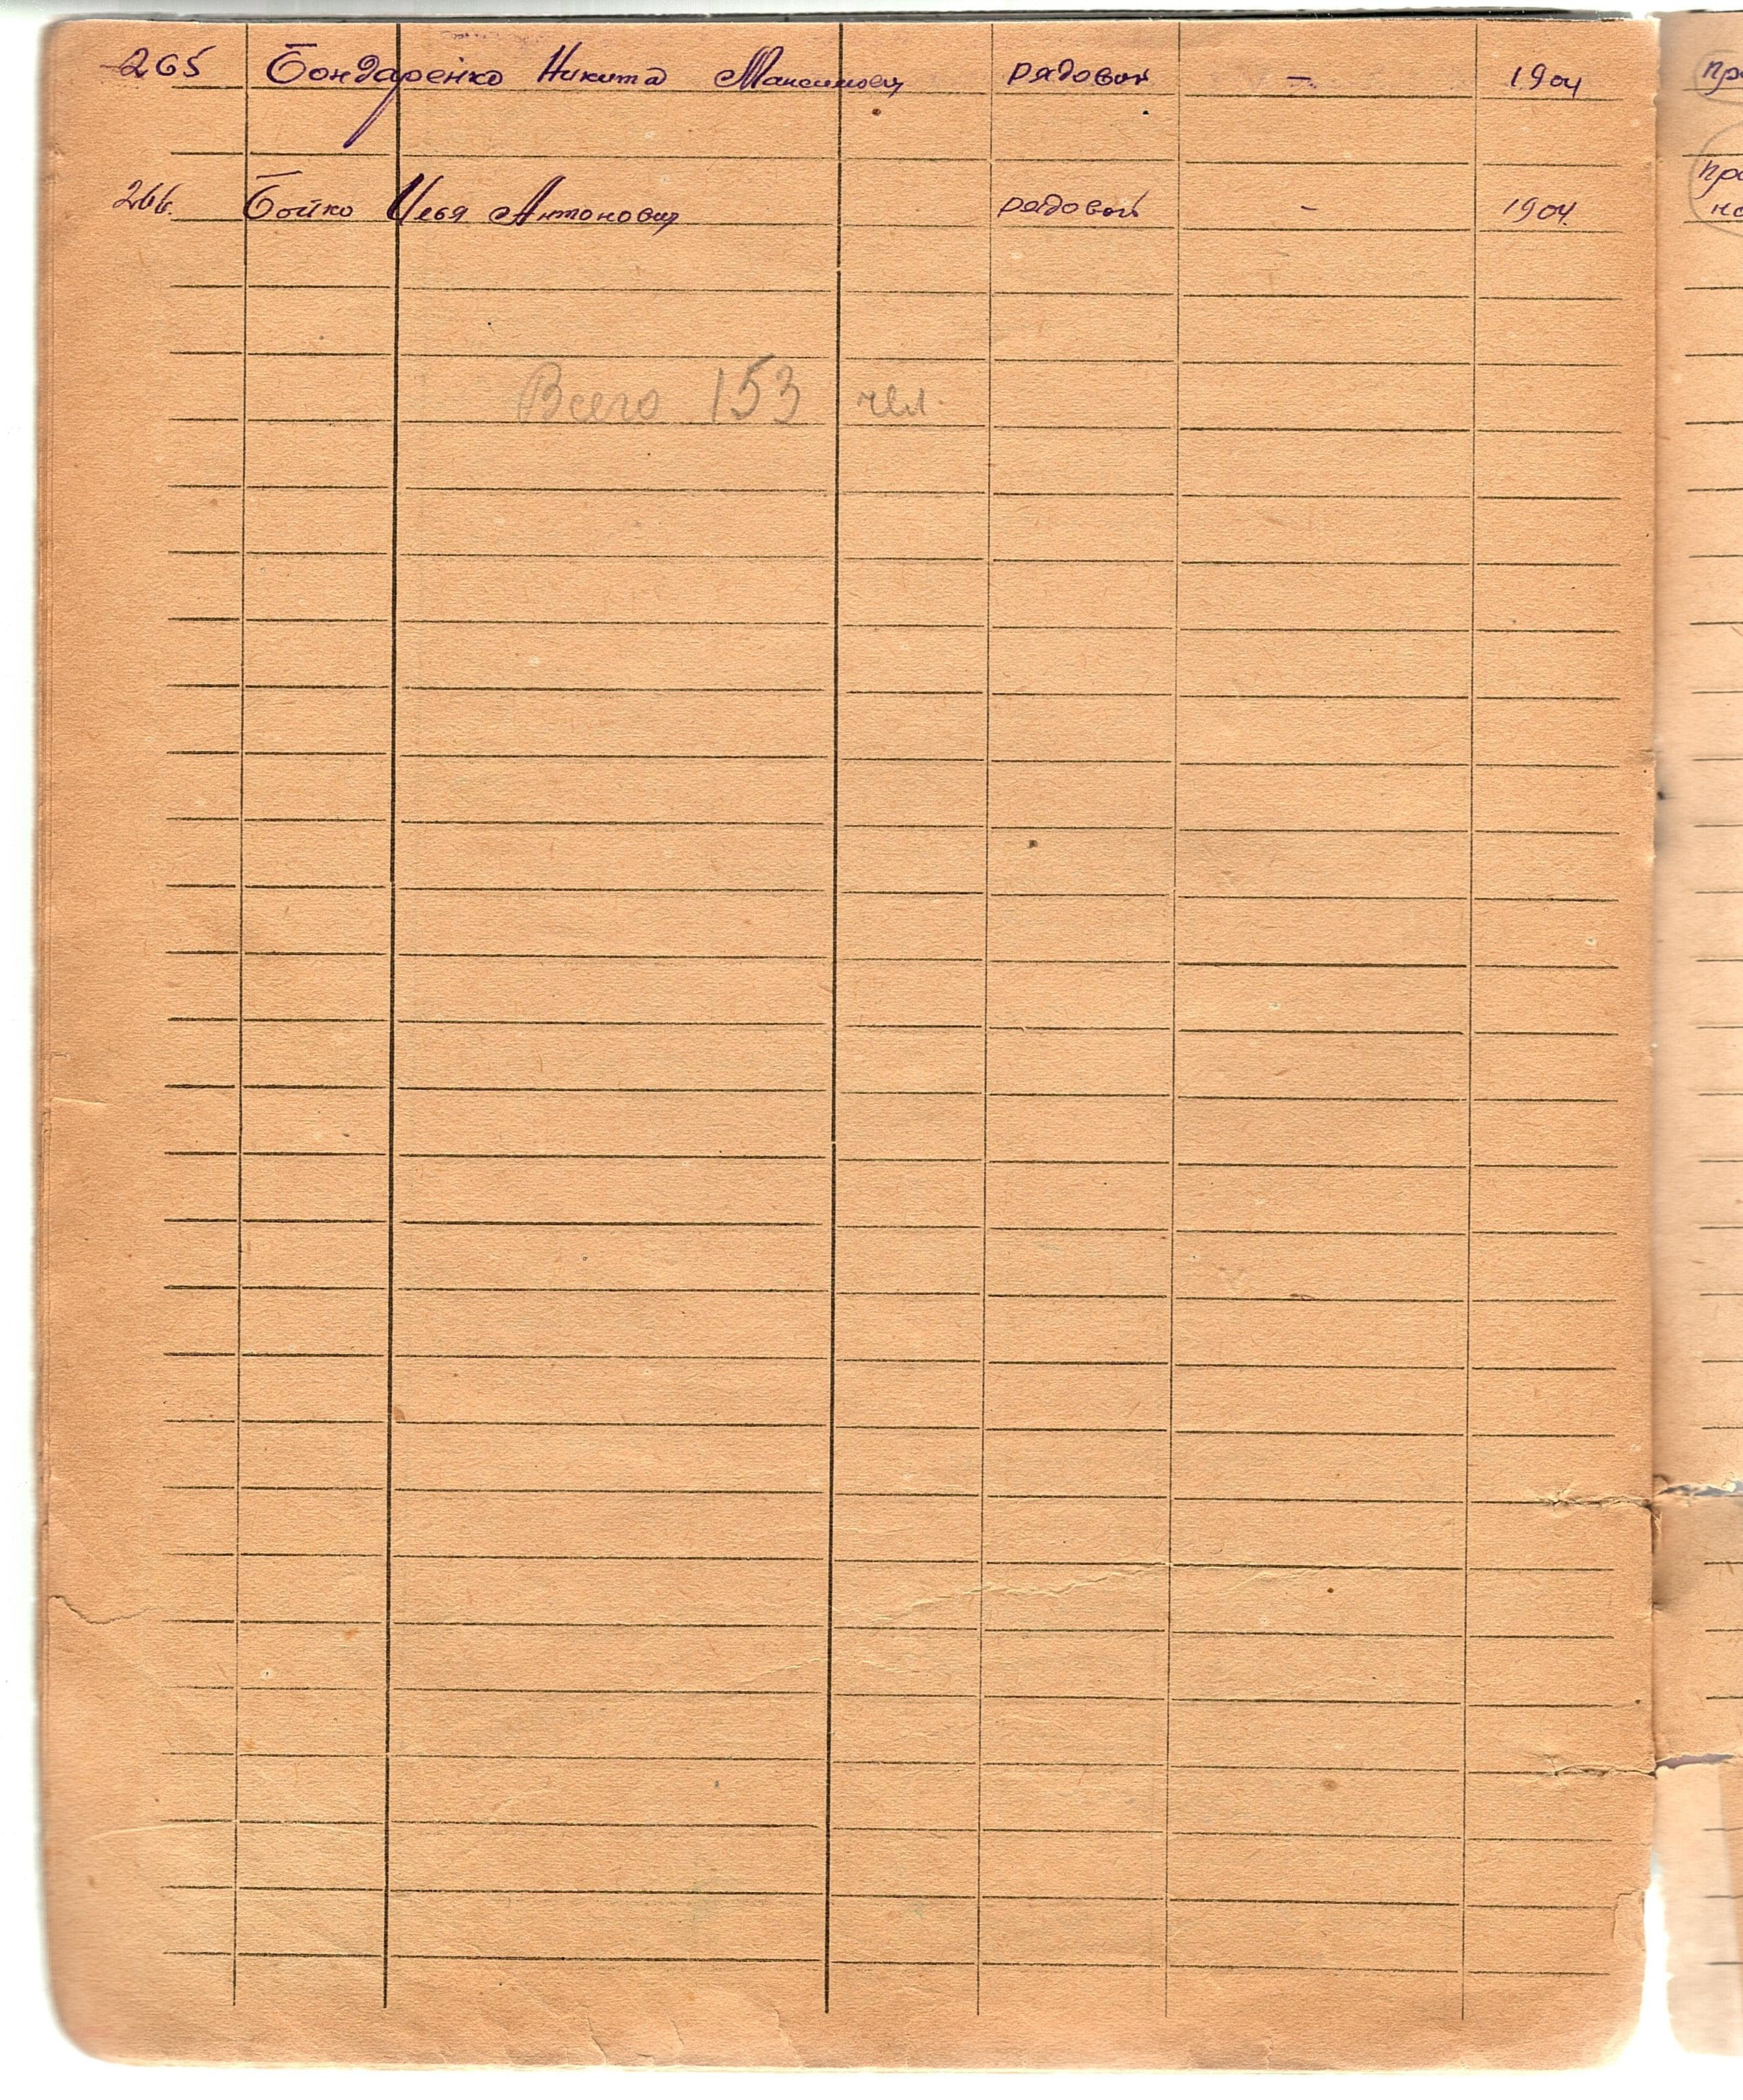 265 Бондаренко Никита Максимович рядовой - 1904
266. Бойко Илья Антонович рядовой - 1904.
Всего 153 чел.